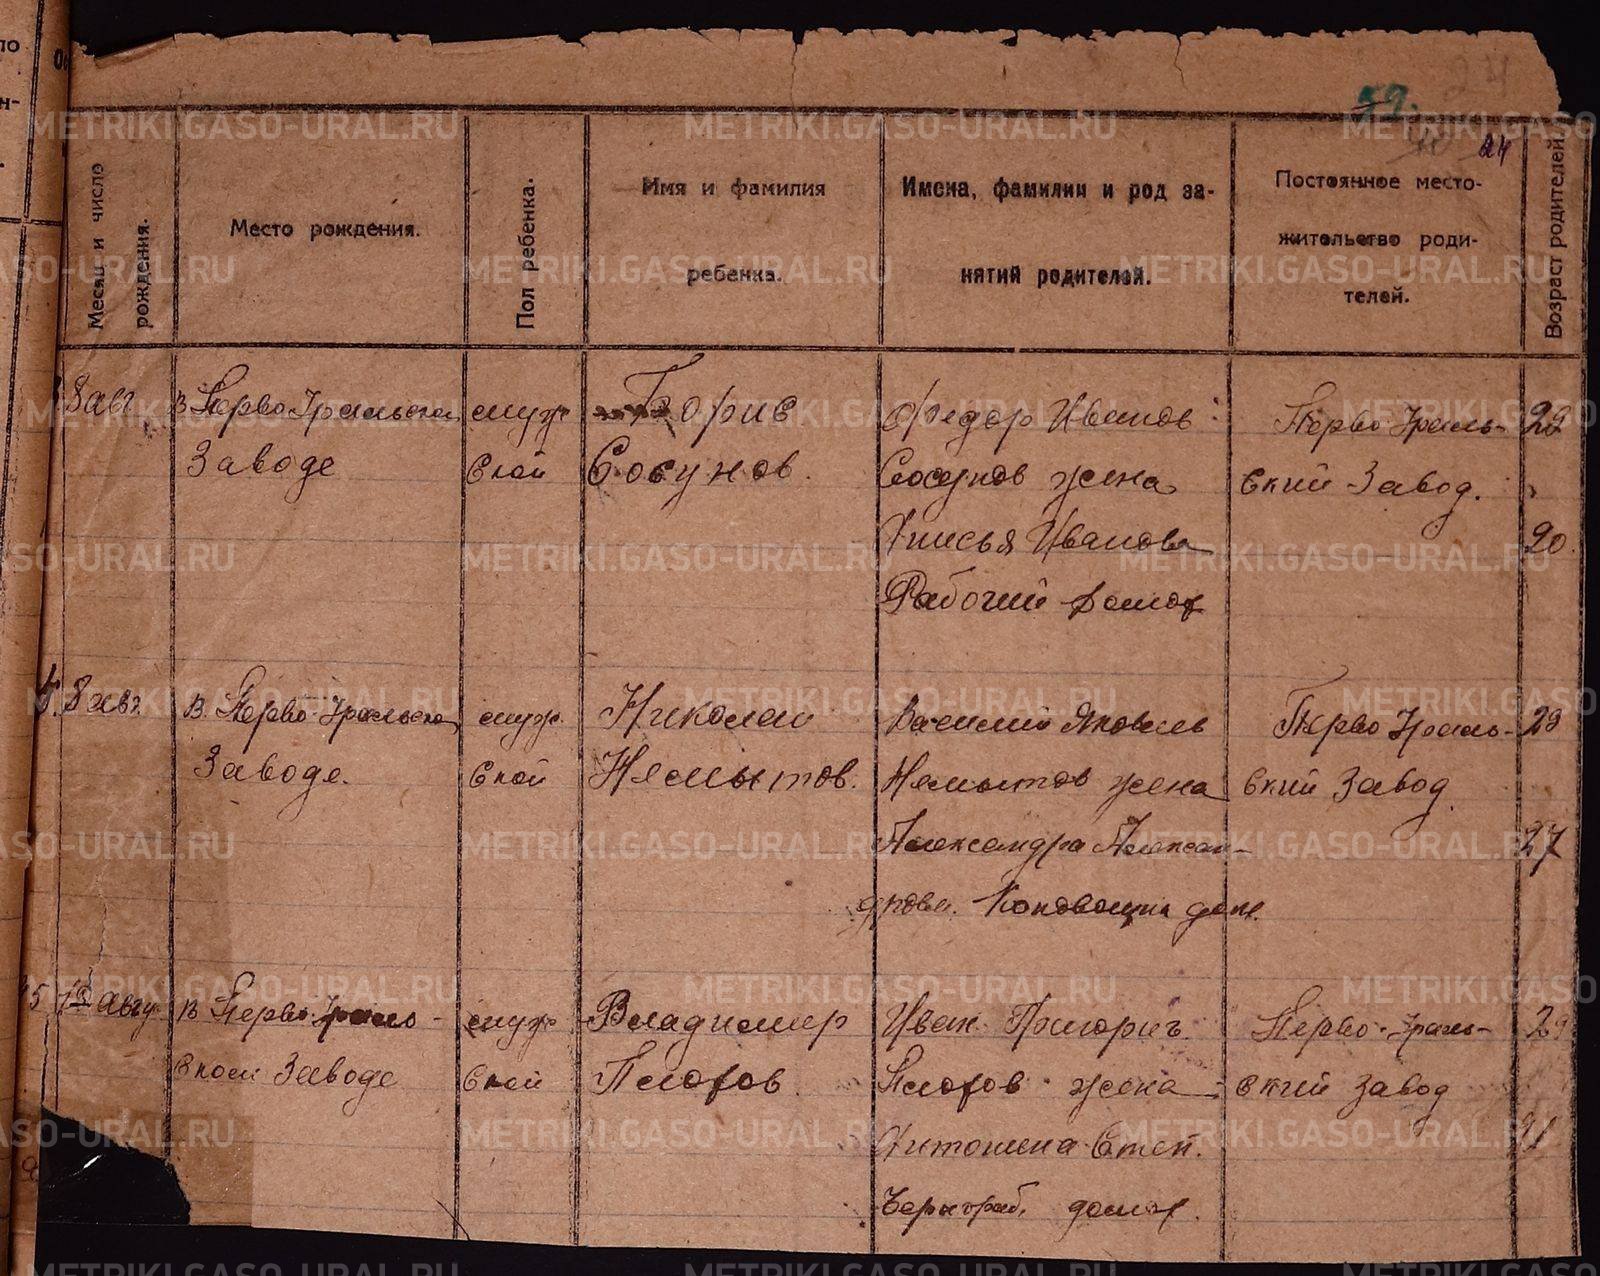 59.
24
24
Месяц и число рождения.
Место рождения.
Пол ребенка.
Имя и фамилия
ребенка.
Имена, фамилии и род за-
нятий родителей.
Постоянное место-
жительство роди-
телей.
Возраст родителей.
8 авг
В Перво Уральском
Заводе
муж
ской
Борис
Сосунов.
Федор Иванов
Сосунов жена
Анисья Иванова
Рабочий домох
Перво-Ураль-
ский Завод.
29
20.
4. 8 авг.
В Перво-Уральском
Заводе.
муж
ской
Николай
Нямытов.
Василий Яковль
Нямытов жена
Александра Алексан-
дровн. дом.
Перво Ураль-
ский Завод
29
27
5
авгу
В Перво-Ураль-
ском Заводе
муж
ской
Владимир
Пиотов
Иван Григорич
жена
Антонина Степ.
домох.
Перво-Ураль-
ский завод
29
METRIKI.GASO-URAL.RU